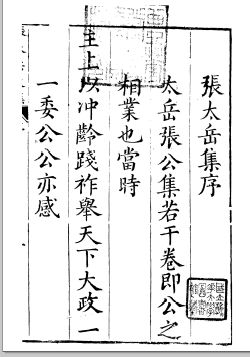 張太岳集序
太岳張公集若干卷即公之
相業也當時
主上以冲齡踐祚舉天下大政一
一委公公亦感